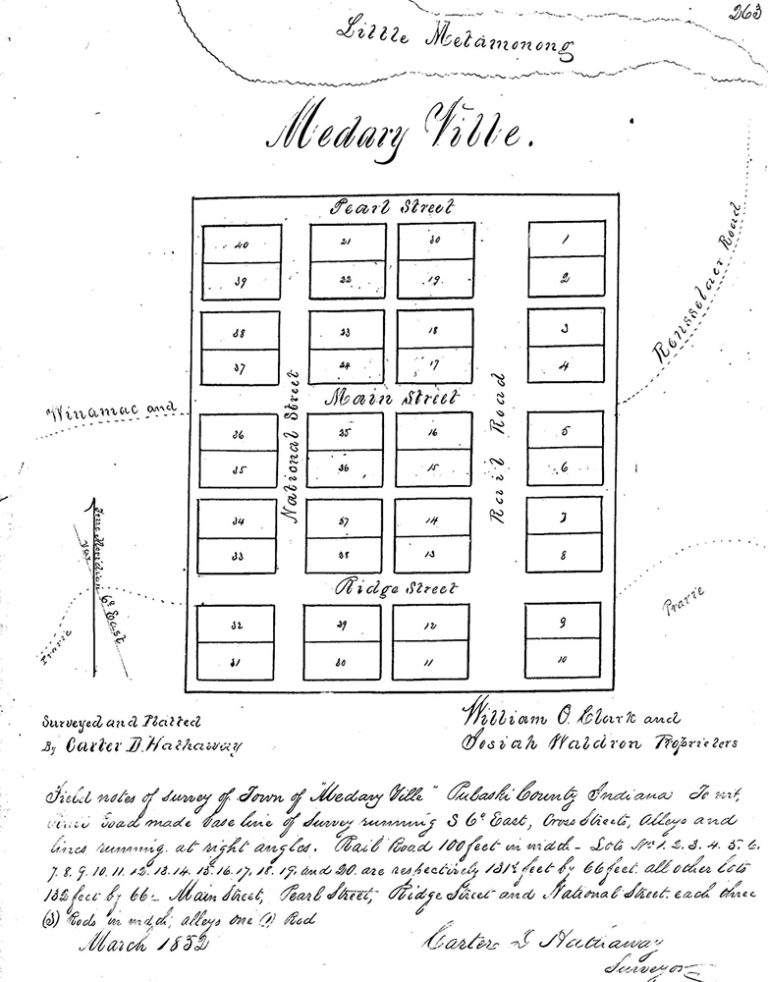 263
Little Metamonong
Medary Ville.
Pearl Street
40 21 20 1
39 22 19 2
38 23 18 3
37 24 17 4
Rensselaer Road
National Street
Rail Road
Main Street
Winamac and
36 25 16 5
35 26 15 6
34 27 14 7
33 28 13 8
True Meridian
Var. 6° East
Ridge Street
Prarie
Prarie
32 29 12 9
31 30 11 10
Surveyed and Platted
By Carter D. Hathaway
William O. Clark and
Josiah Waldron Proprieters
Field notes of survey of Town of "Medary Ville" Pulaski County Indiana To wit,
Road made base line of survey running S 6° East, Cross Streets, Alleys and
lines running at right angles. Rail Road 100 feet in width - Lots No 1. 2. 3. 4. 5. 6.
7. 8. 9. 10. 11. 12. 13. 14. 15. 16. 17. 18. 19. and 20. are respectively feet by 66 feet. all other lots
132 feet by 66 - Main Street, Pearl Street, Ridge Street and National Street. each three
(3) Rods in width, alleys one (1) Rod
March 1852
Carter D Hathaway
Surveyor